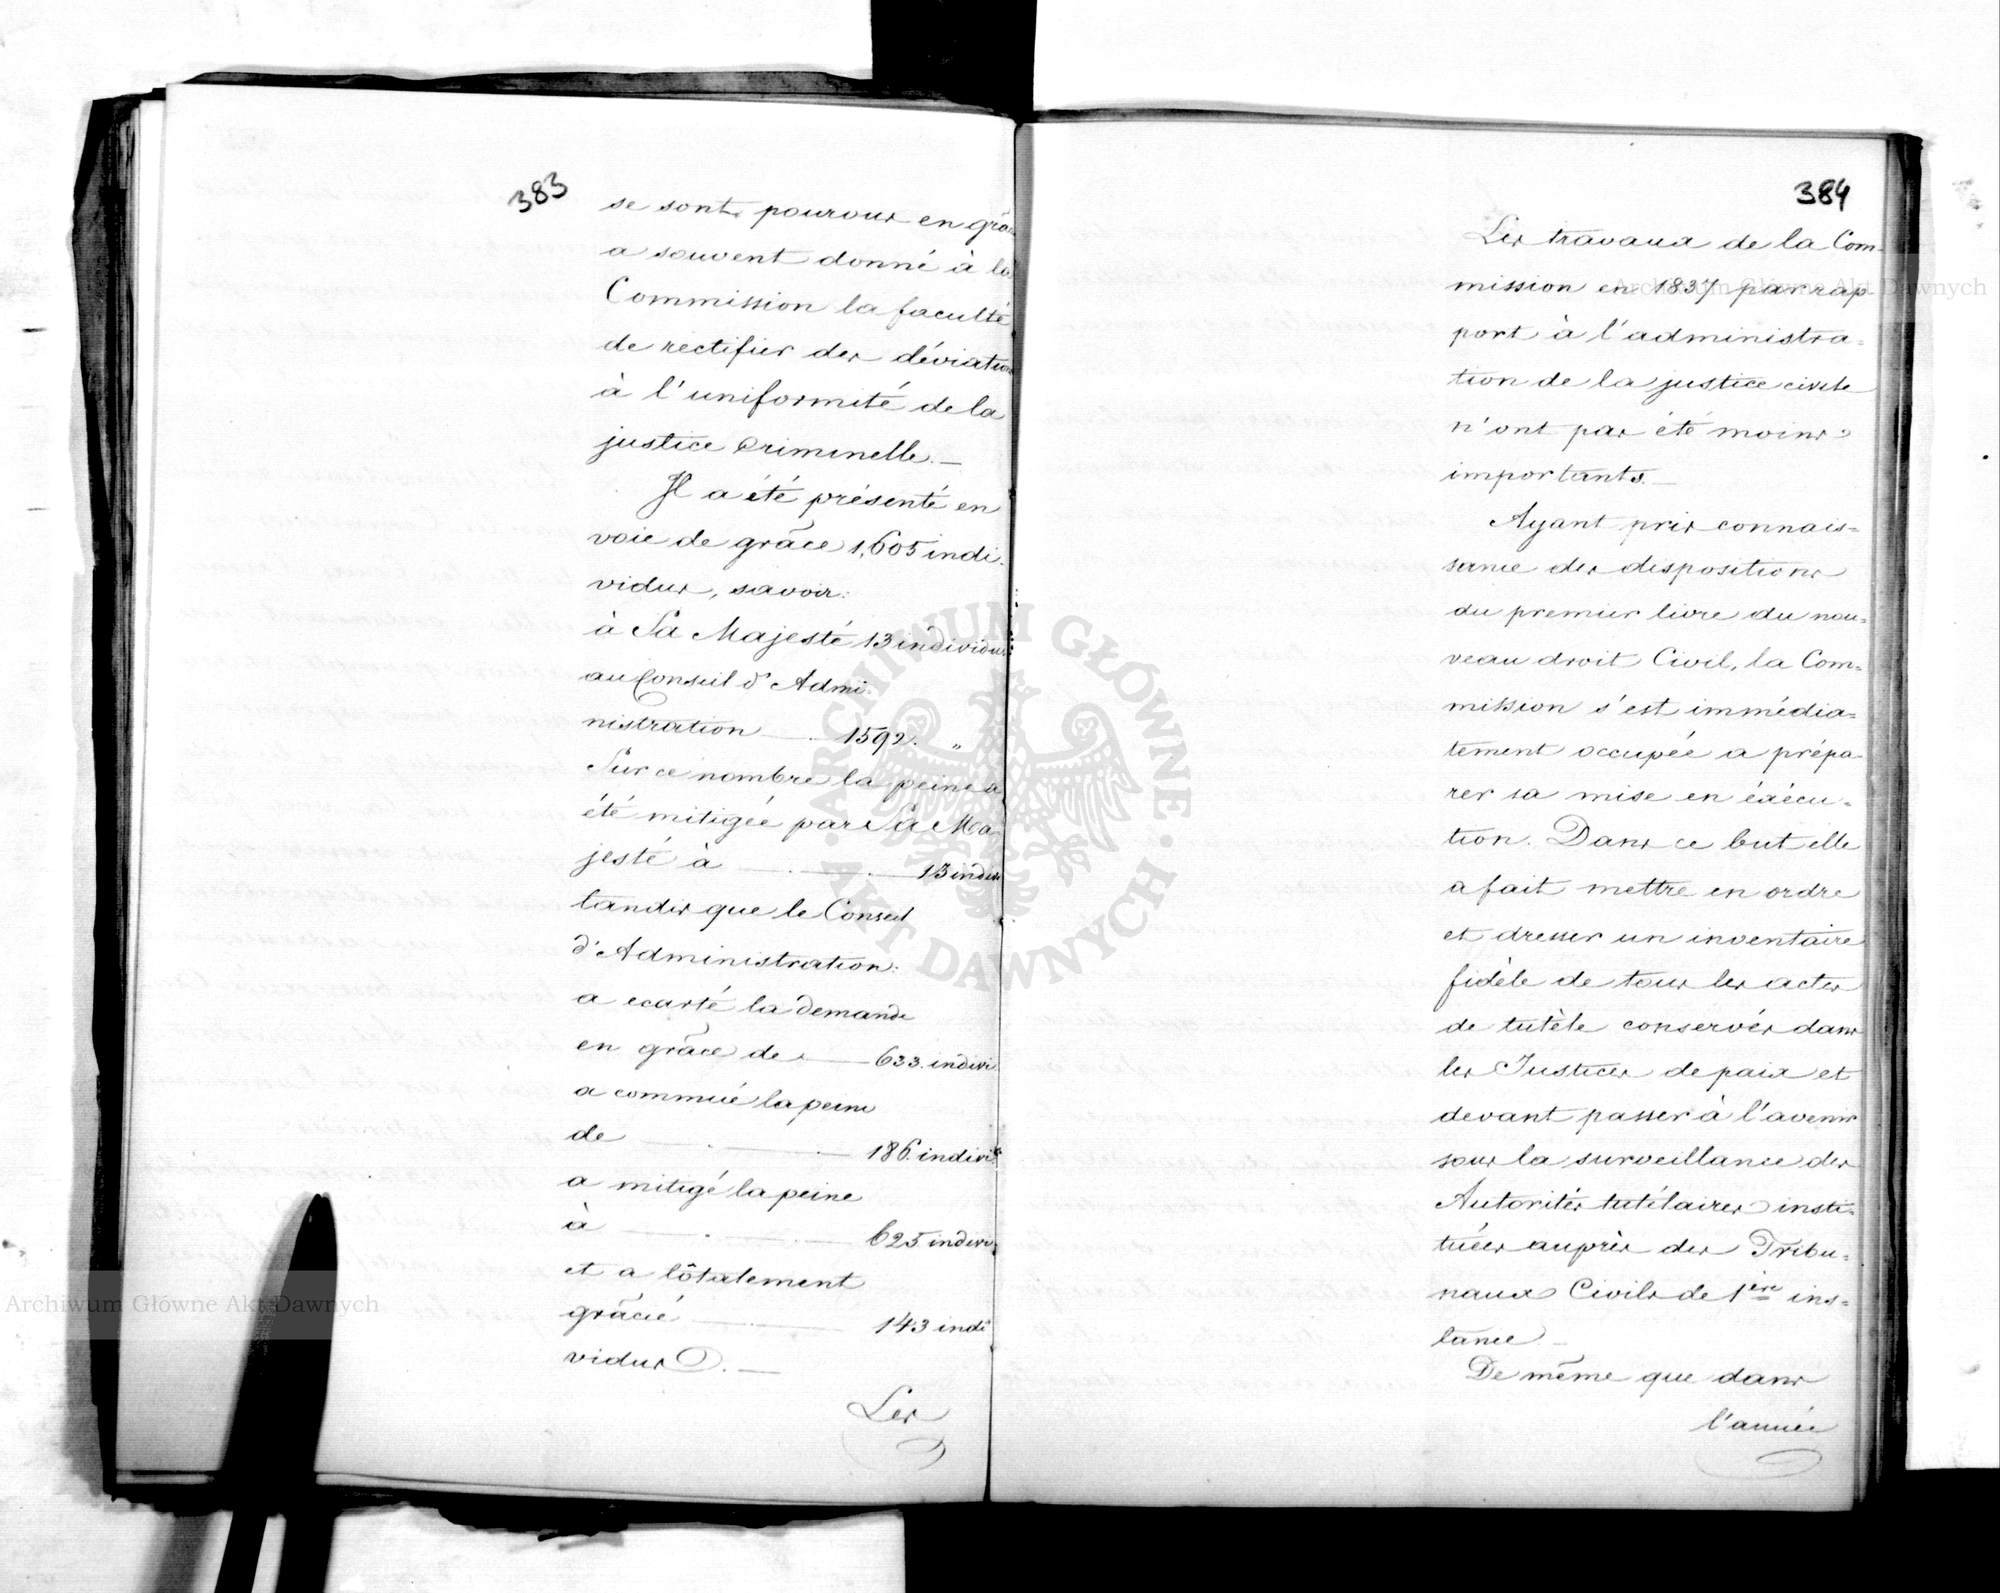 383
se sont pourvus en grâ
a souvent donné à la
Commission la faculté
de rectifier des déviation
à l'uniformité de la
justice Criminelle. —
Il a été présenté en
voie de grâce 1,605 indi-
vidus, savoir:
à Sa Majesté 13 individus
au Conseil d'Admi-
nistration — 1592. "
Sur ce nombre la peine a
été mitigée par Sa Ma-
jesté à — 13 indivi
tandis que le Conseil
d'Administration:
a ecarté la demande
en grâce de — 633. indivi
a commué la peine
de — 186. indivi
a mitigé la peine
à — 625. indivi
et a tôtalement
grâcié — 143 indi
vidus. —
Les
384
Les travaux de la Com-
mission en 1837 par rap
port à l'administra-
tion de la justice civile
n'ont pas été moins
importants. —
Ayant pris connais-
sance des dispositions
du premier livre du nou-
veau droit Civil, la Com-
mission s'est immédia-
tement occupée a prépa
rer sa mise en éxécu-
tion. Dans ce but elle
a fait mettre en ordre
et dresser un inventaire
fidèle de tous les actes
de tutèle conservés dans
les Justices de paix et
devant passer à l'avenir
sous la surveillance des
Autorités tutélaires insti-
tuées auprès des Tribu-
naux Civils de 1ère ins-
tance. —
De même que dans
l'année
Archiwum Główne Akt Dawnych
Archiwum Główne Akt Dawnych
ARCHIWUM GŁÓWNE · AKT DAWNYCH ·